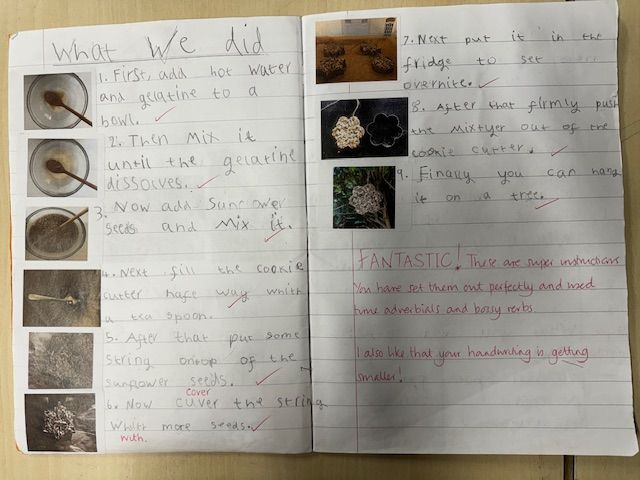 What We did
1. First, add hot water
and gelatine to a
bowl.
2. Then Mix it
until the gelatine
dissolves.
3. Now add Sunflower
seeds and Mix it.
4. Next fill the cookie
cutter hafe way whith
a tea spoon.
5. After that put some
string ontop of the
sunflower seeds.
cover
6. Now cuver the string
Whith more seeds.
with.
7. Next put it in the
fridge to set
overnite.
8. After that firmly push
the Mixtyer out of the
cookie cutter.
9. Finally you can hang
it on a tree.
FANTASTIC! These are super instructions
You have set them out perfectly and used
time adverbials and bossy verbs.
I also like that your handwriting is getting
smaller!